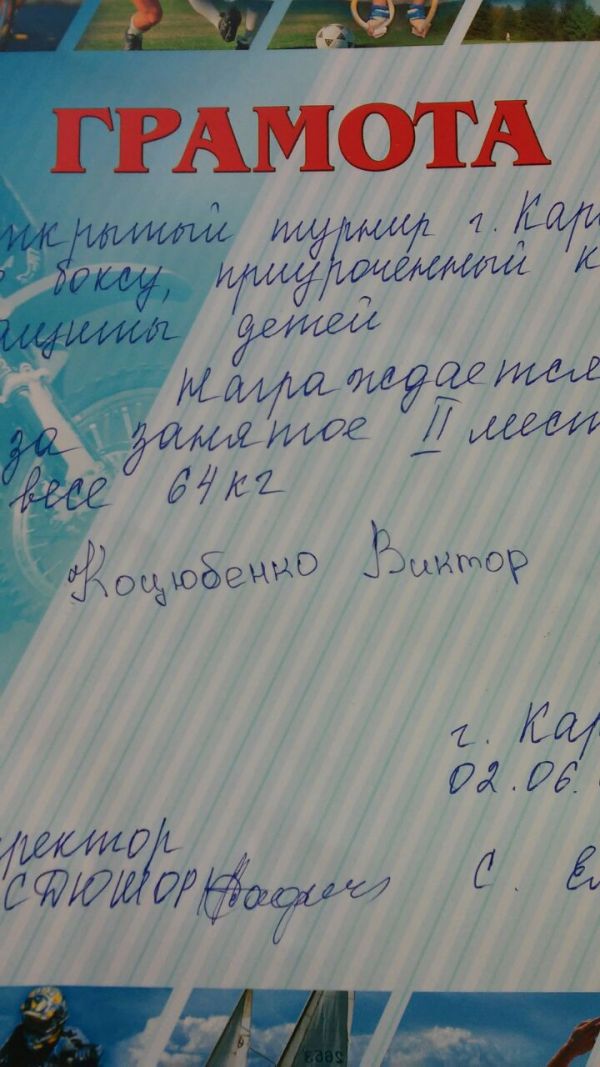 ГРАМОТА
ткрытый турнир г. Кар
боксу, приуроченный к
ащиты детей
Награждается
за занятое II мест
весе 64 кг
Коцюбенко Виктор
г. Кар
02.06.
ректор
СДЮШОР С. Ел
2663